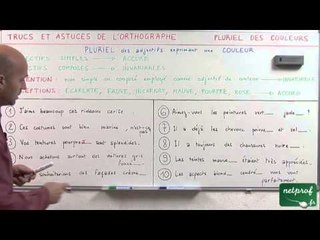 TRUCS ET ASTUCES DE L'ORTHOGRAPHE PLURIEL DES COULEURS
PLURIEL des adjectifs exprimant une COULEUR
ADJECTIFS SIMPLES ACCORD
ADJECTIFS COMPOSÉS INVARIABLES
ATTENTION : nom simple ou composé employé comme adjectif de couleur INVARIABLE
EXCEPTIONS : ÉCARLATE, FAUVE, INCARNAT, MAUVE, POURPRE, ROSE ACCORD
1 J'aime beaucoup ces rideaux cerise
2 Ces costumes sont bleu marine, n'est-ce pas
3 Vos tentures pourpres sont splendides.
4 Nous achetons surtout des voitures gris
5 souhaiterions des façades crème
6 Aimez-vous les peintures vert jade ?
7 Il a déjà les cheveux poivre et sel.
8 Il a toujours des chaussures noires
9 Les teintes mauve étaient très appréciées.
10 Ces aspects blanc cendré vous vont parfaitement.
netprof.fr